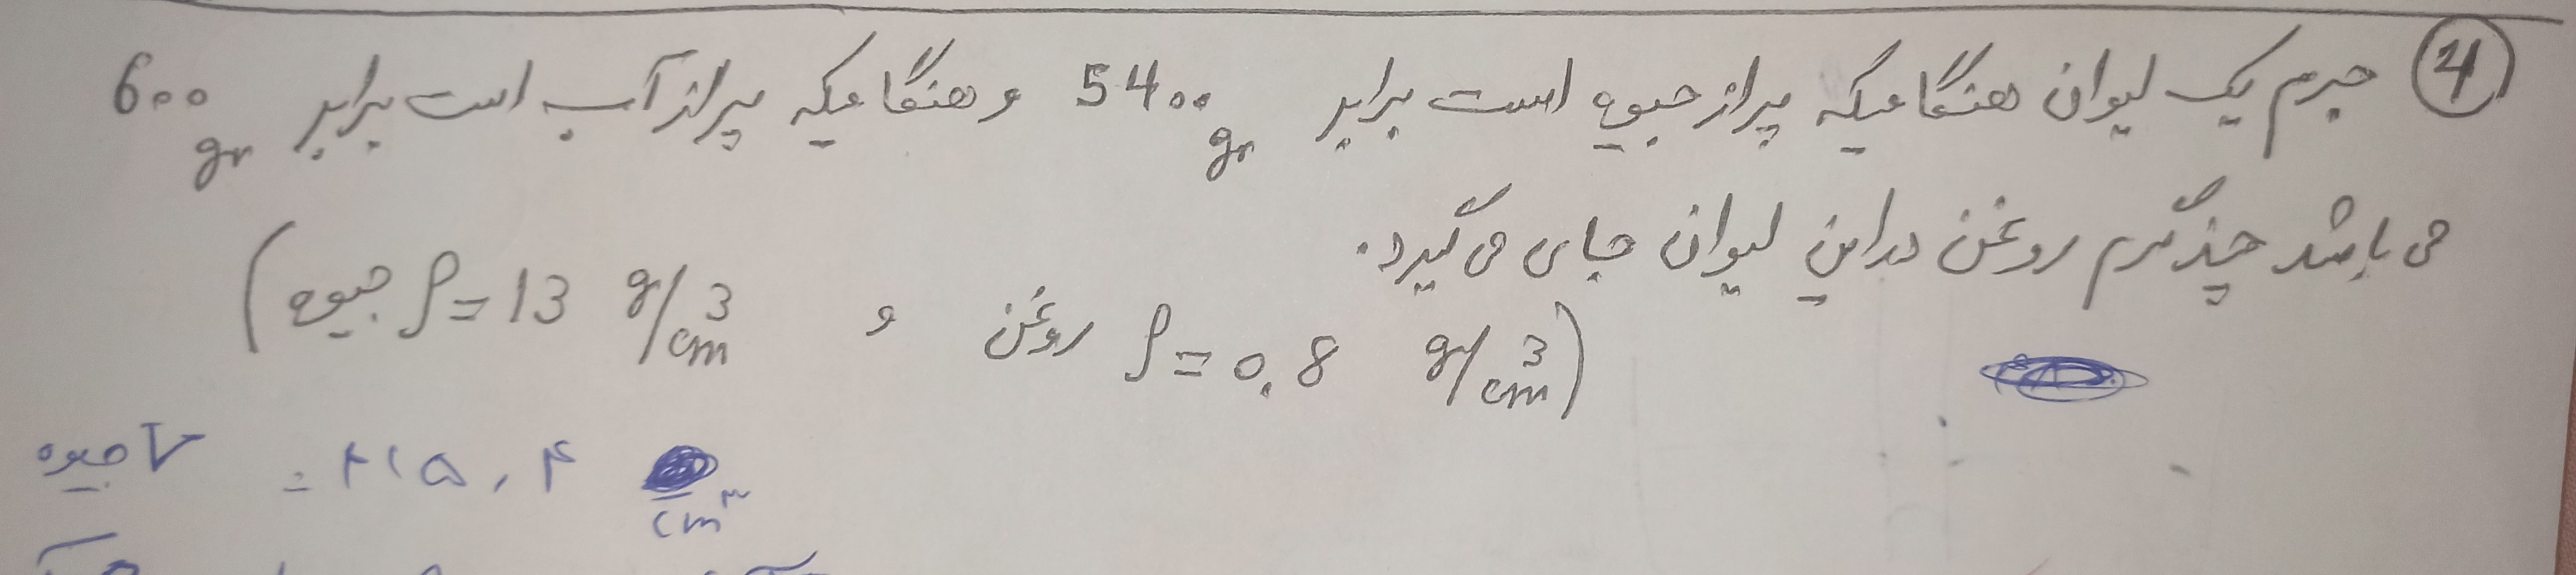 ④ جرم یک لیوان هنگامیکه پر از جیوه است برابر 5400 gr و هنگامیکه پر از آب است برابر 600 gr
می باشد چند گرم روغن در این لیوان جای می گیرد.
(جیوه ρ = 13 g/cm³ و روغن ρ = 0.8 gr/cm³)
V جیوه = ۴۱۵,۴ cm³